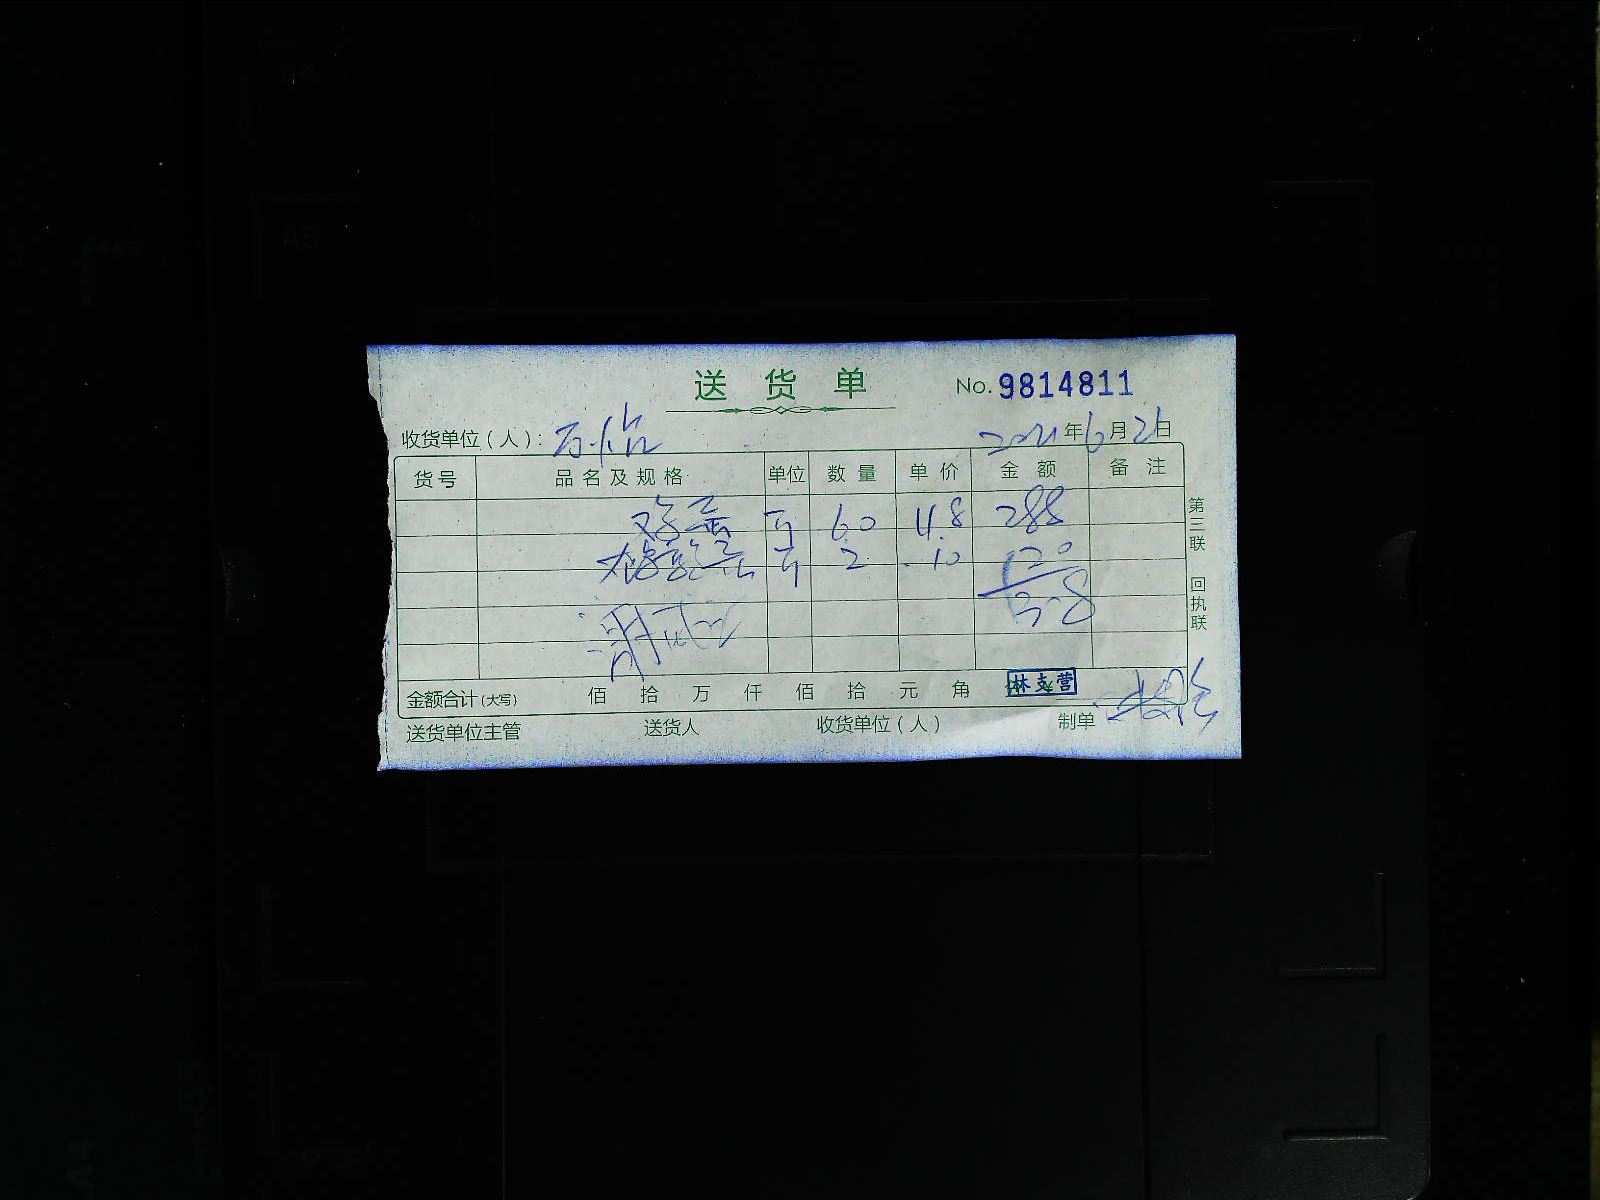 送货单 No. 9814811
收货单位（人）：万怡 2021年6月21日
货号 品名及规格 单位 数量 单价 金额 备注
鸡蛋 斤 60 4.8 288
斤 2 10
308
金额合计（大写） 佰 拾 万 仟 佰 拾 元 角 林支营
送货单位主管 送货人 收货单位（人） 制单
第三联 回执联
A4
A5
A4